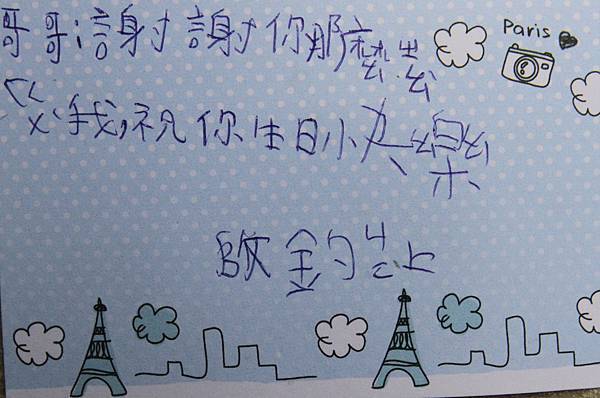 哥哥:謝謝你那麼ㄓㄠ
ㄍㄨˋ我,祝你生日快樂
鈞 上
Paris